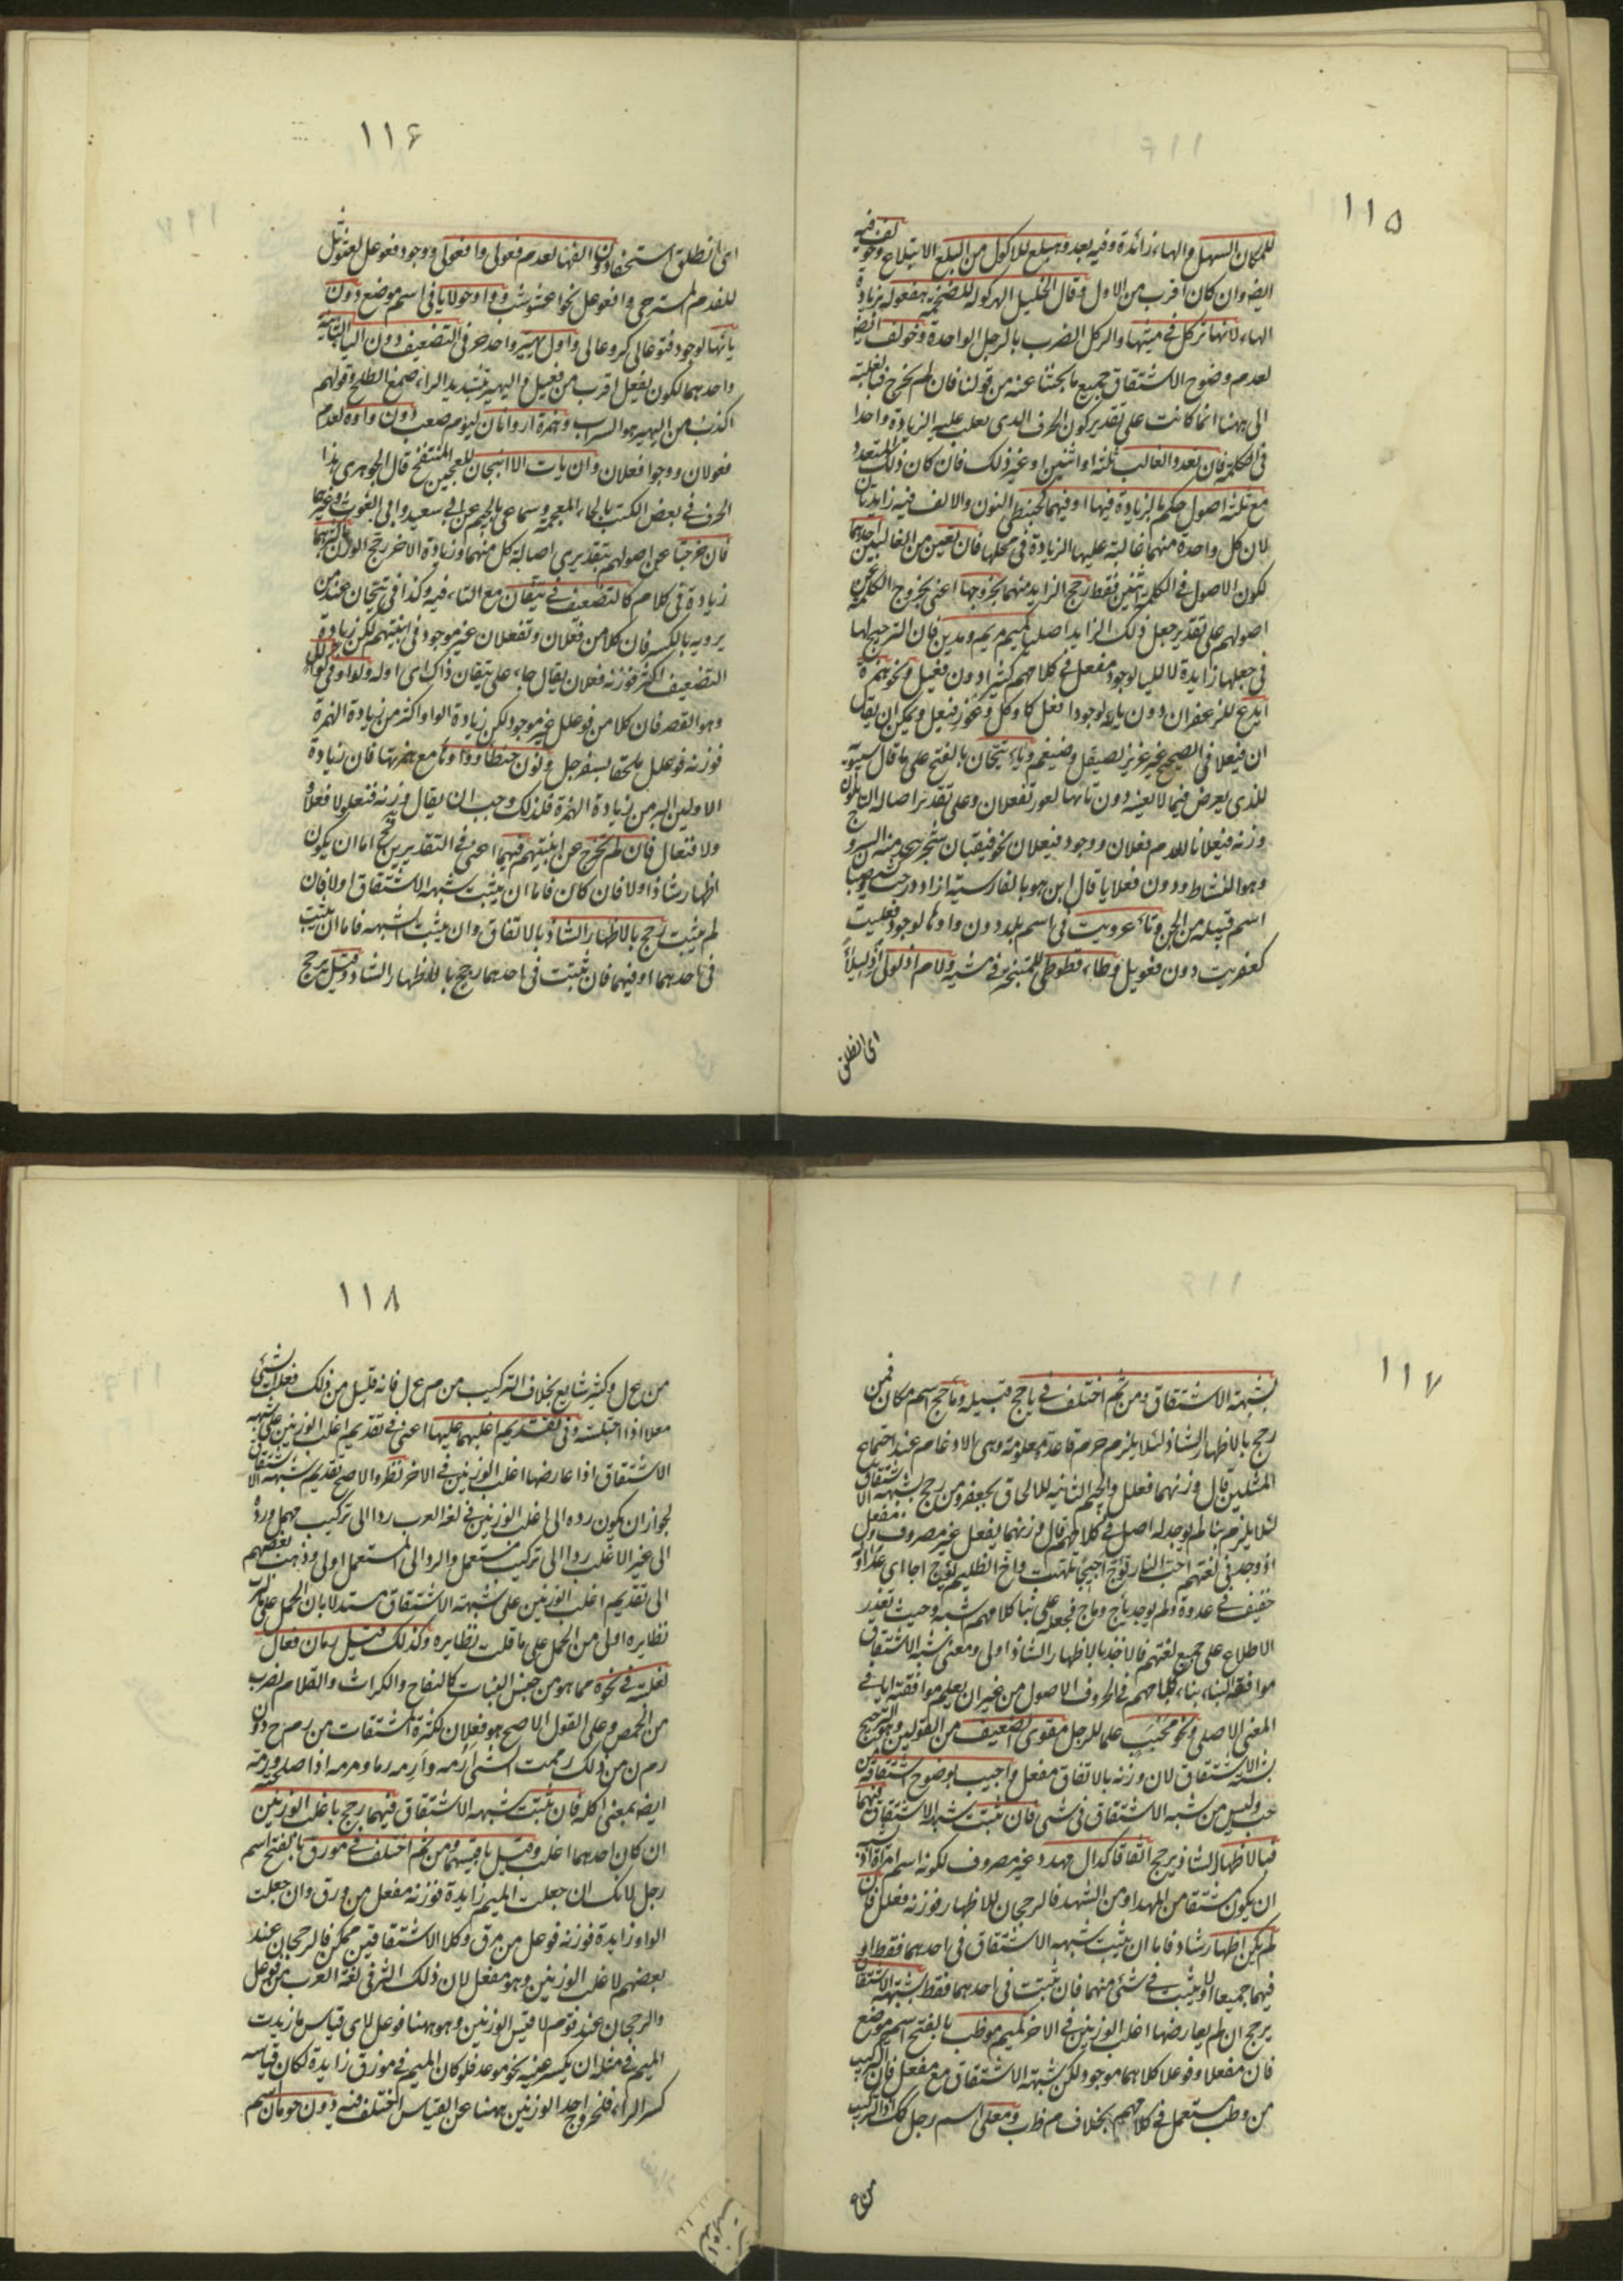 ١١۵
للمكان السهل والهاء زائدة وفيه بعد وهبلع للاكول من البلع الابتلاع وخولف فيه
ايضا وان كان اقرب من الاول وقال الخليل الهركولة للضخمة هفعولة بزيادة
الهاء لانها تركل في مشيتها والركل الضرب بالرجل الواحدة وخولف ايضا
لعدم وضوح الاشتقاق جميع ما بحثنا عنه من قولنا فان لم تخرج فبالغلبة
الى ههنا انما كانت على تقدير كون الحرف الذى يغلب عليه الزيادة واحدا
فى الكلمة فان تعدد الغالب ثلثة او اثنين او غير ذلك فان كان ذلك المتعدد
مع ثلثة اصول حكم بالزيادة فيها او فيهما كحبنطى النون والالف فيه زايدتان
لان كل واحدة منهما غالبة عليها الزيادة فى محلها فان تعين من الغالبين احدهما
لكون الاصول فى الكلمة اثنين فقط رجح الزايد منهما بخروجها اعنى بخروج الكلمة عن
اصولهم على تقدير جعل ذلك الزايد اصليا كميم مريم ومدين فان الترجيح لها
فى جعلها زايدة لا للياء لوجود مفعل فى كلامهم كثيرا دون فعيل ونحو همزة
ايدع للزعفران دون يائه لوجود افعل كاوكل ونحوز فيعل ويمكن ان يقال
ان فيعلا فى الصحيح غير عزيز لصيقل وضيغم وياء تيحان بالفتح على ما قال سيبويه
للذى يعرض فيما لا يعنيه دون تائها لعوز تفعلان وعلى تقدير اصالة التاء يكون
وزنه فيعلانا لعدم فعلان ووجود فيعلان نحو فيقبان شجر يتخذ منه السروج
وهو النشاط ودون فعلايا قال ابن هو بالفارسية ازاد درخت
اسم قبيلة من الجن وتاء عزويت فى اسم بلد دون واوها لوجود فعليت
كعفريت دون فعويل وطاء قطوطى للمتبختر فى مشيه ولام اذلولى اذليلاءً
اى انطلق
١١۶
اى انطلق استخفاء دون الفها لعدم فعولى وافعولى ووجود فعوعل لعثوثل
للفدم المسترخى وافعوعل نحو اعشوشب وواو حولايا فى اسم موضع دون
يائها لوجود فوعالى كزوعالى واول يهيرّ واحد حرفى التضعيف دون الياء الثانية
واحدهما لكون يفعل اقرب من فعيل فى اليهيرّ بتشديد الراء صمغ الطلح وقولهم
اكذب من اليهير هو السراب وهمزة ارونان ليوم صعب دون واوه لعدم
فعولان ووجود افعلان وان يات الا انبجان للعجين المنتفخ قال الجوهرى هذا
الحرف فى بعض الكتب بالخاء المعجمة وسماعى بالجيم عن ابى سعيد وابى الغوث وغيرهما
فان خرجتا عن اصولهم بتقديرى اصالة كل منهما وزيادة الاخر رجح الوزن باكثرهما
زيادة فى كلامهم كالتضعيف فى تيقان مع التاء فيه وكذا فى تيحان عند من
يرويه بالكسر فان كلا من فعلان وتفعلان غير موجود فى ابنيتهم لكن زيادة
التضعيف اكثر فوزنه فعلان يقال جاء على تيقان ذاك اى اوله ولواو فى كوألل
وهو القصير فان كلا من فوعلل غير موجود لكن زيادة الواو اكثر من زيادة الهمزة
فوزنه فوعلل ملحقا بسفرجل ونون حنطأو وواوها مع همزتها فان زيادة
الاولين اكثر من زيادة الهمزة فلذلك وجب ان يقال وزنه فنعلو لا فعلأو
ولا فنعال فان لم تخرج عن ابنيتهم فيهما اعنى فى التقديرين رجح اما ان يكون
اظهار شاذ اولا فان كان فاما ان يثبت شبهة الاشتقاق اولا فان
لم يثبت رجح بالاظهار الشاذ بالاتفاق وان يثبت الشبهة فاما ان يثبت
فى احدهما او فيهما فان ثبتت فى احدهما رجح بالاظهار الشاذ وقيل يرجح
١١٧
بشبهة الاشتقاق ومن ثم اختلف فى ياجج قبيلة وماجج اسم مكان فمن
رجح بالاظهار الشاذ لئلا يلزم خرم قاعدة معلومة وهى الادغام عند اجتماع
المثلين قال وزنهما فعلل والجيم الثانية للالحاق بجعفر ومن رجح بشبهة الاشتقاق
لئلا يلزم بناء لم يوجد له اصل فى كلامهم قال وزنهما يفعل غير مصروف ومفعل
اذ وجد فى لغتهم اجت النار تؤج اجيجا تلهبت واج الظليم يؤج اجا اى عدا وله
حفيف فى عدوه ولم يوجد يأج ومأج فجعله على بناء كلامهم اشبه وحيث تعذر
الاطلاع على جميع لغتهم فالاخذ بالاظهار الشاذ اولى ومعنى شبه الاشتقاق
موافقة البناء بناء كلامهم فى الحروف الاصول من غير ان يعلم موافقته اياه فى
المعنى الاصلى ونحو محبب علما للرجل مقوى الضعيف من القولين وهو الترجيح
بشبهة الاشتقاق لان وزنه بالاتفاق مفعل واجيب بوضوح اشتقاقه من
حب وليس من شبه الاشتقاق فى شئ فان ثبتت شبهة الاشتقاق فيهما
فبالاظهار الشاذ يرجح اتفاقا كدال مهدد غير مصروف لكونه اسم امراة اذ يشبه
ان يكون مشتقا من المهد او من الشهد فالرجحان للاظهار فوزنه فعلل فان
لم يكن اظهار شاذ فاما ان يثبت شبهة الاشتقاق فى احدهما فقط او
فيهما جميعا او لا يثبت فى شئ منهما فان ثبتت فى احدهما فقط بشبهة الاشتقاق
يرجح ان لم يعارضها اغلب الوزنين فى الاخر كميم موظب بالفتح اسم موضع
فان مفعلا وفوعلا كلاهما موجود لكن شبهة الاشتقاق مع مفعل فان التركيب
من وظب مستعمل فى كلامهم بخلاف م ظ ب ومعلى اسم رجل كذلك اذ التركيب
من ع
١١٨
من ع ل و كثير شايع بخلاف التركيب من م ع ل فانه قليل من ذلك معلت الشئ
معلا اذا اختلسته وفى تقديم اغلبهما عليها اعنى فى تقديم اغلب الوزنين على شبهة
الاشتقاق اذا عارضها اغلب الوزنين فى الاخر نظر والاصح تقديم شبهة الاشتقاق
لجواز ان يكون رده الى اغلب الوزنين فى لغة العرب ردا الى تركيب مهمل ورده
الى غير الاغلب ردا الى تركيب مستعمل والرد الى المستعمل اولى وذهب بعضهم
الى تقديم اغلب الوزنين على شبهة الاشتقاق مستدلا بان الحمل على ما كثر
نظايره اولى من الحمل على ما قلت نظايره وكذلك قيل رمان فعال
لغلبته فى نحوه مما هو من جنس النبات كالتفاح والكراث والقلام لضرب
من الحمض وعلى القول الاصح هو فعلان لكثرة مشتقات من رم م دون
رم ن من ذلك رممت الشئ ارمه وارِمه رما ومرمة اذا اصلحته ورمه
ايضا بمعنى اكله فان ثبتت شبهة الاشتقاق فيهما رجح باغلب الوزنين
ان كان احدهما اغلب وقيل باقيسهما ومن ثم اختلف فى مورق بالفتح اسم
رجل لانك ان جعلت الميم زايدة فوزنه مفعل من ورق وان جعلت
الواو زايدة فوزنه فوعل من مرق وكلا الاشتقاقين ممكن فالرجحان عند
بعضهم لاغلب الوزنين وهو مفعل لان ذلك اكثر فى لغة العرب من فوعل
والرجحان عند قوم لاقيس الوزنين وهو ههنا فوعل لان قياس ما زيدت
الميم فى مثله ان يكسر عينه نحو موعد فلو كان الميم فى مورق زايدة لكان قياسه
كسر الراء فلخروج احد الوزنين ههنا عن القياس اختلف فيه دون حومان اسم